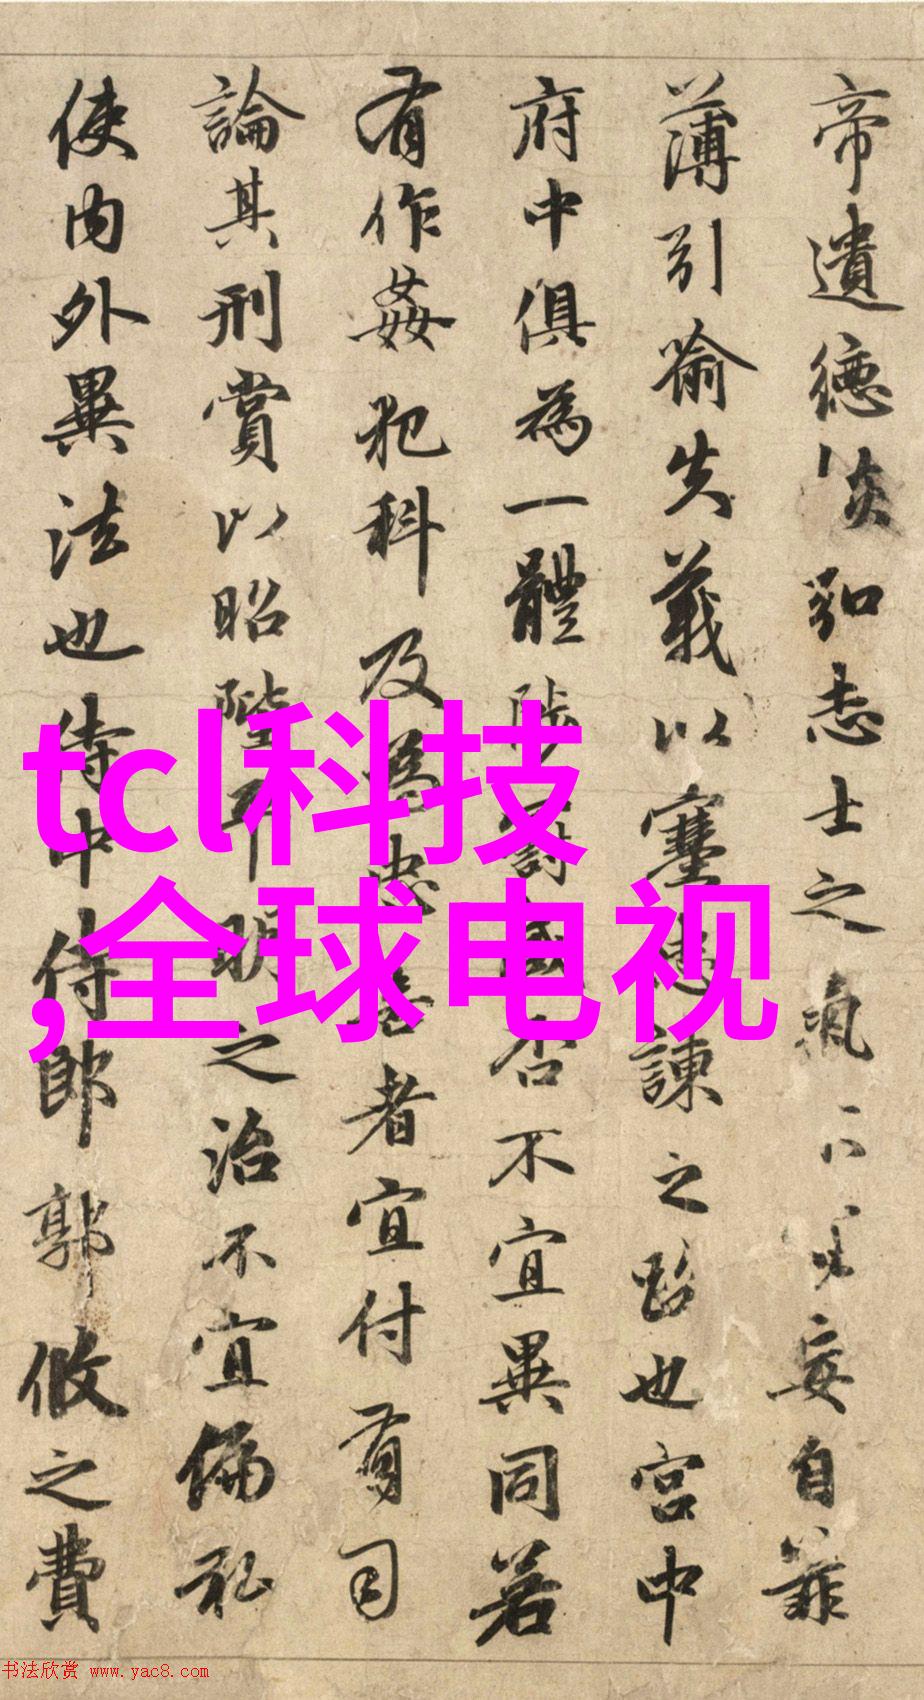 帝遺德恢弘志士之氣不宜妄自菲
薄引喻失義以塞忠諫之路也宮中
府中俱為一體陟罰臧否不宜異同若
有作姦犯科及為忠善者宜付有司
論其刑賞以昭陛下平明之治不宜偏私
使內外異法也侍中侍郎郭攸之費
tcl科技
,全球电视
书法欣赏 www.yac8.com